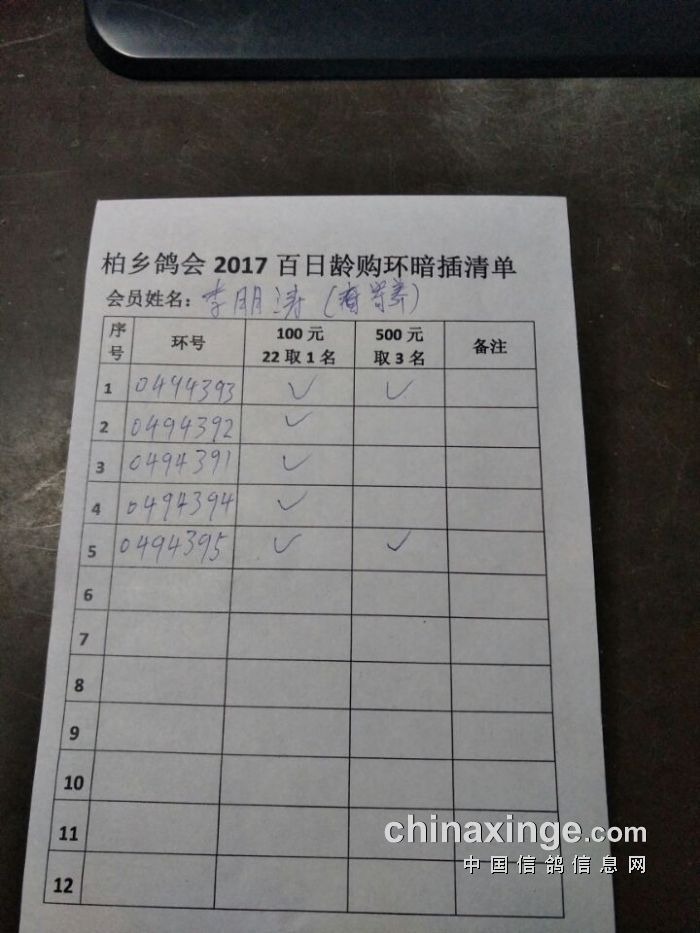 柏乡鸽会 2017 百日龄购环暗插清单
会员姓名：李朋涛（
序号 环号 100 元 22 取 1 名 500 元 取 3 名 备注
1 0494393 ✓ ✓
2 0494392 ✓
3 0494391 ✓
4 0494394 ✓
5 0494395 ✓ ✓
6
7
8
9
10
11
12
chinaxinge.com
中国信鸽信息网